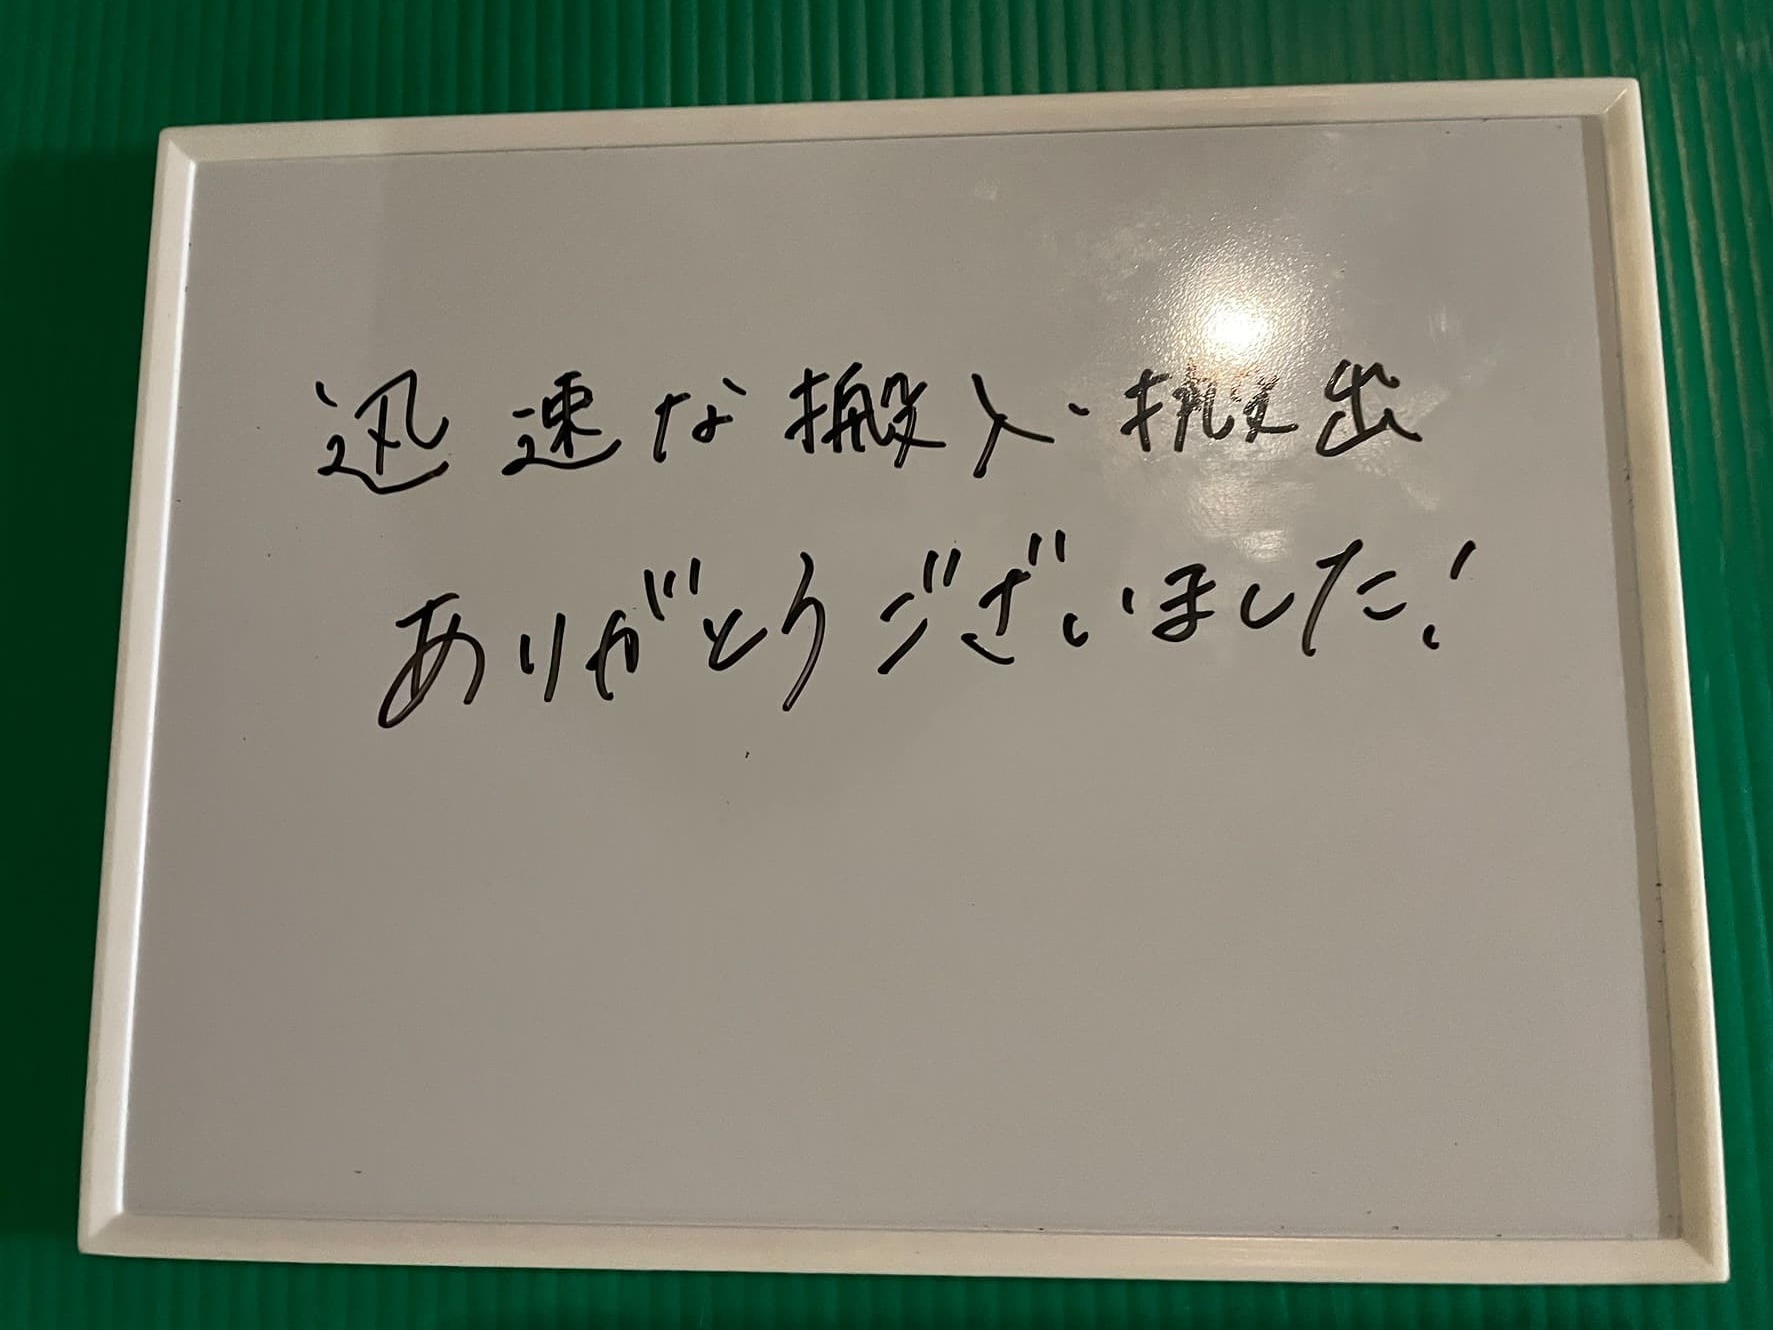 迅速な搬入・搬出
ありがとうございました!